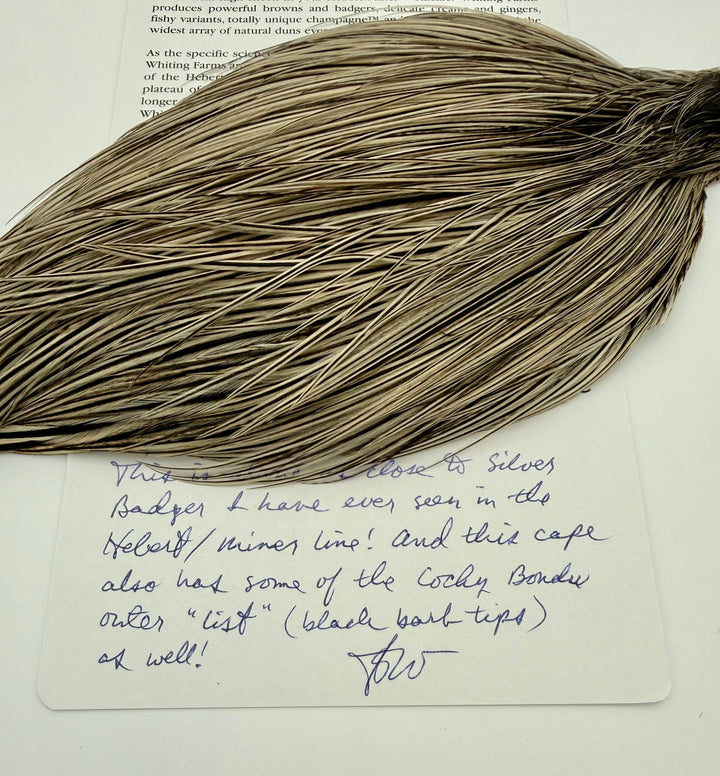 produces powerful browns and badgers, delicate creams and gingers,
fishy variants, totally unique champagne™ the
widest array of natural duns
As the specific
Whiting Farms
of the
plateau of
longer
This is close to Silver
Badger I have ever seen in the
Hebert/miner line! And this cape
also has some of the Cochy Bondu
outer "list" (black barb tips)
as well!